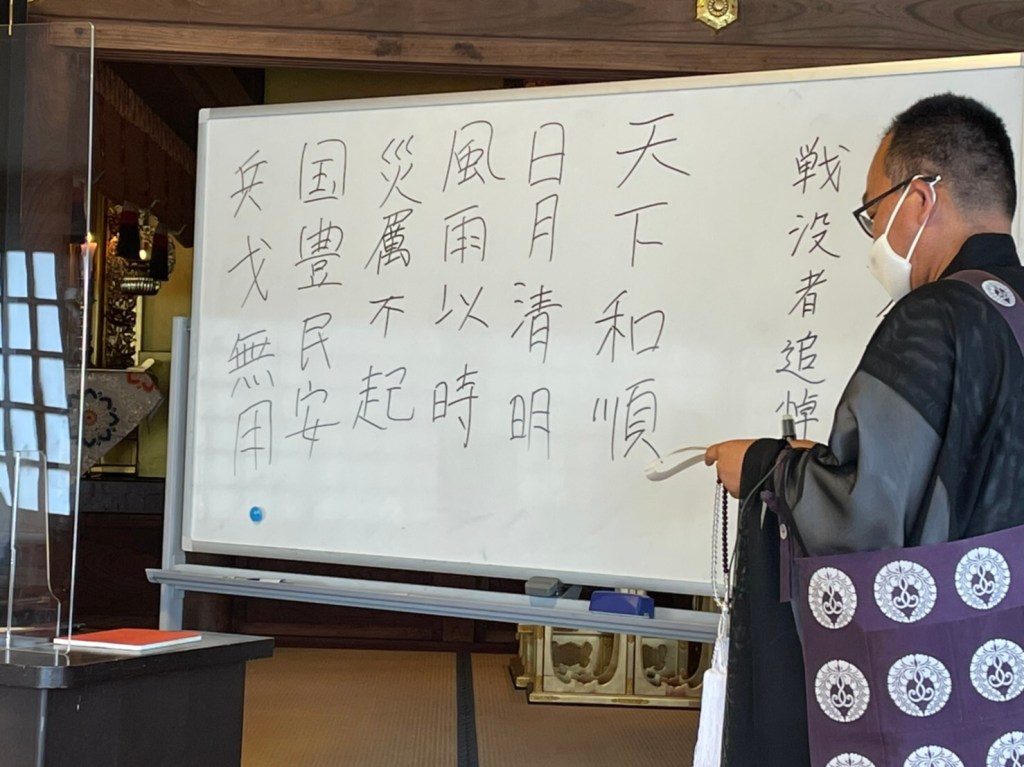 戦没者追悼
天下和順
日月清明
風雨以時
災厲不起
国豊民安
兵戈無用